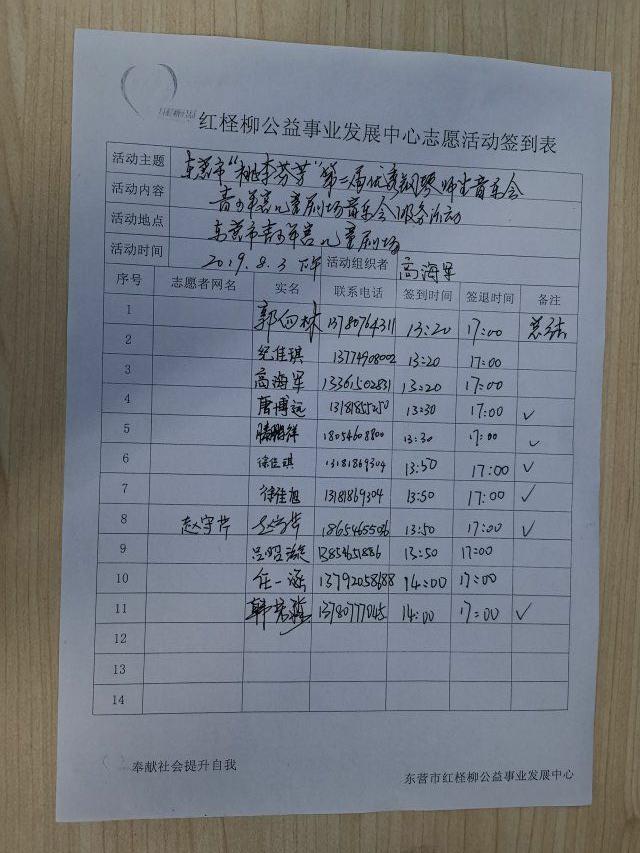 红柽柳公益事业发展中心志愿活动签到表
活动主题 东营市“桃李芬芳”第二届优秀钢琴师生音乐会
活动内容 青少年宫儿童剧场音乐会服务活动
活动地点 东营市青少年宫儿童剧场
活动时间 2019.8.3 下午 活动组织者 高海军
序号 志愿者网名 实名 联系电话 签到时间 签退时间 备注
1 郭向林 13780764311 13:20 17:00
2 纪佳琪 13774908002 13:20 17:00
3 高海军 13361502831 13:20 17:00
4 唐博远 13181855250 13:30 17:00 ✓
5 滕鹏祥 18054608800 13:30 17:00 ✓
6 徐佳琪 13181869304 13:50 17:00 ✓
7 徐佳旭 13181869304 13:50 17:00 ✓
8 赵守芹 赵守芹 18654655036 13:50 17:00 ✓
9 13854651886 13:50 17:00
10 任一涵 13792058688 14:00 17:00
11 韩 13780777845 14:00 17:00 ✓
12
13
14
奉献社会提升自我
东营市红柽柳公益事业发展中心